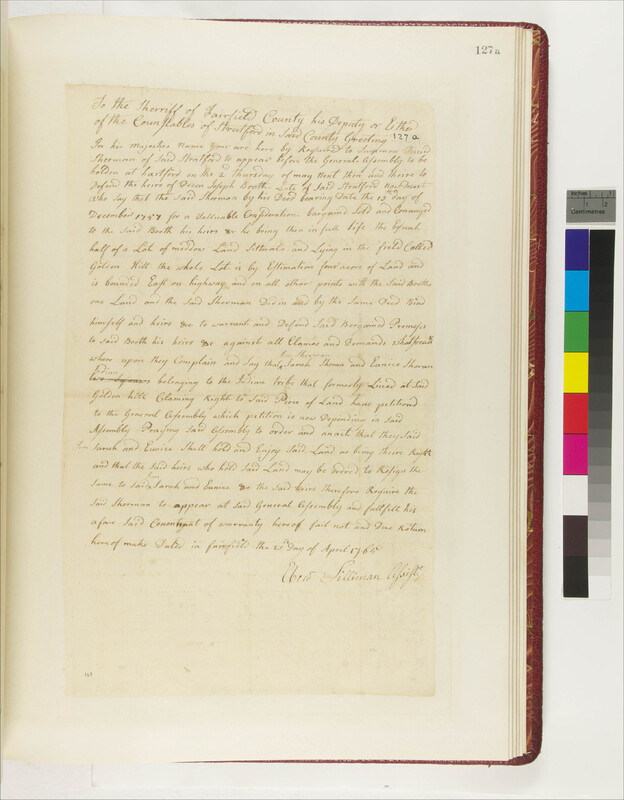 127a
To the Sherriff of Fairfield County his Deputy or Either
of the Counstables of Stratford in Said County Greeting
127a
In his majesties Name you are here by Required to Sumon David
Sherman of Said Stratford to appear before the General Assembly to be
holden at hartford on the 2 Thursday of may Next then and theire to
Defend the heirs of Decon Joseph Booth Late of Said Stratford Now Decest
Who Say that the Said Sherman by his Deed bearing Date the 13th day of
December 1757 for a Valluable Consideration bargaind Sold and Convayed
to the Said Booth his heirs &c he being then in full life the Equal
half of a Lot of meddow Land Sittuate and Lying in the field Called
Golden Hill the whole Lot is by Estimation four acres of Land and
is bounded East on highway and on all other points with the Said Booths
own Land and the said Sherman Did in and by the Same Deed Bind
himself and heirs &c to warrant and Defend Said Bargained Premises
to said Booth his heirs &c against all Claimes and Demands whatsoever
where upon they Complain and Say that Sarah Shoran and Eunice Shoran
Tom Sherman
Indians
belonging to the Indian tribe that formerly Lived at said
Golden hill Claiming Right to Said Piece of Land have petitioned
to the General Assembly which petition is now Depending in Said
Assembly Praying Said Assembly to order and anact that they Said
Tom
Sarah and Eunice Shall hold and Enjoy Said Land as being theire Right
and that the Said heirs who hold Said Land may be ordred to Resign the
Same to said Sarah and Eunice &c the said heirs therefore Require the
Said Sherman to appear at Said General Assembly and fullfill his
afore Said Covennant of warrenty hereof fail not and Due Return
hereof make Dated in fairfield the 25th Day of April 1765
Ebenr Silliman Assist